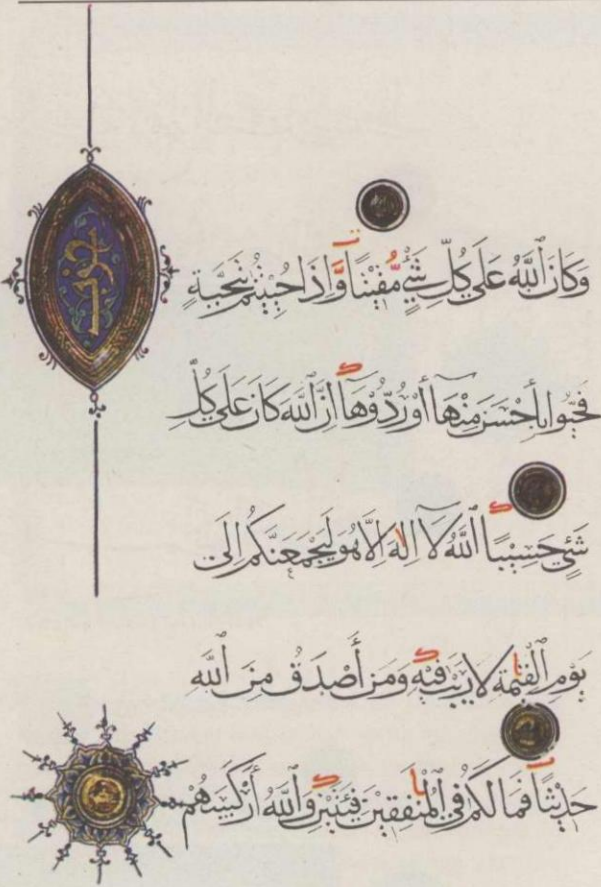 وَكَانَ ٱللَّهُ عَلَى كُلِّ شَيْءٍ مُّقِيْتًا وَّاِذَا حُيِّيْتُمْ بِتَحِيَّةٍ
فَحَيُّوا بِأَحْسَنَ مِنْهَآ أَوْ رُدُّوْهَآ اِنَّ ٱللَّهَ كَانَ عَلَى كُلِّ
شَيْءٍ حَسِيْبًا ٱللَّهُ لَآ اِلٰهَ اِلَّا هُوَ لَيَجْمَعَنَّكُمْ اِلَى
يَوْمِ ٱلْقِيٰمَةِ لَا رَيْبَ فِيْهِ وَمَنْ أَصْدَقُ مِنَ ٱللَّهِ
حَدِيْثًا فَمَا لَكُمْ فِي ٱلْمُنٰفِقِيْنَ فِئَتَيْنِ وَٱللَّهُ أَرْكَسَهُمْ